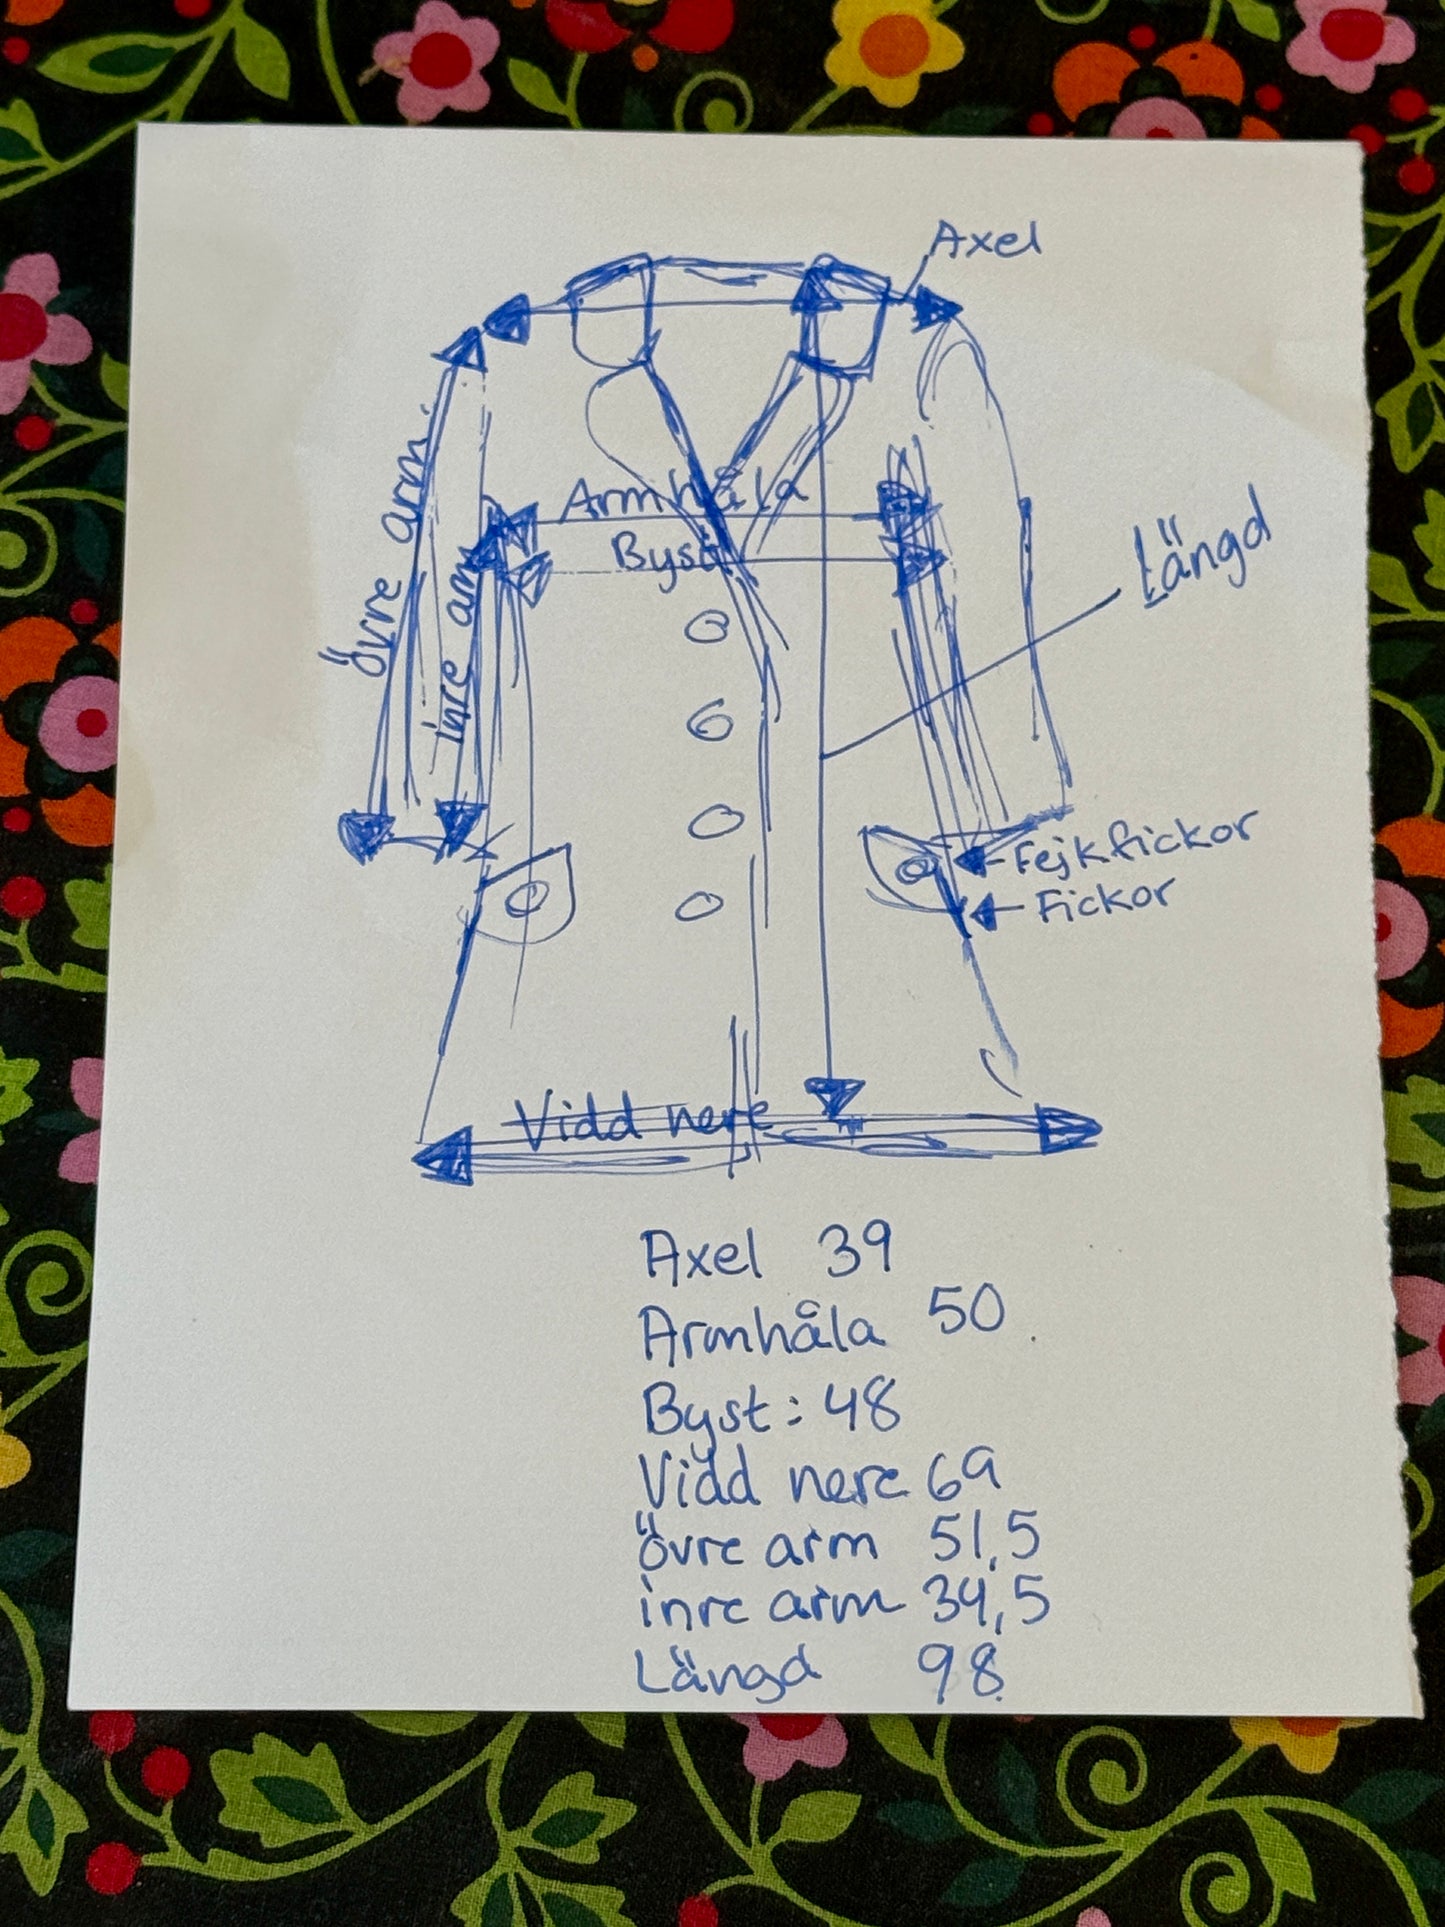 Axel
övre arm
inre arm
Armhåla
Byst
Längd
Fejkfickor
Fickor
Vidd nere
Axel 39
Armhåla 50
Byst: 48
Vidd nere 69
övre arm 51,5
inre arm 34,5
Längd 98